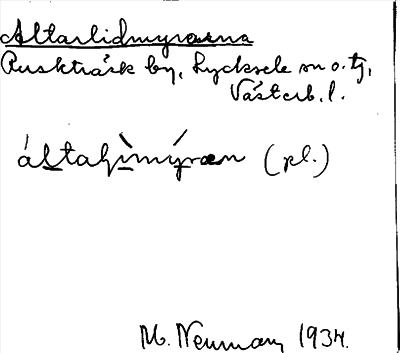 Altarlidmyrarna
Ruskträsk by, Lycksele sn o. tg,
Västerb. l.
(pl.)
M. Neuman 1934.